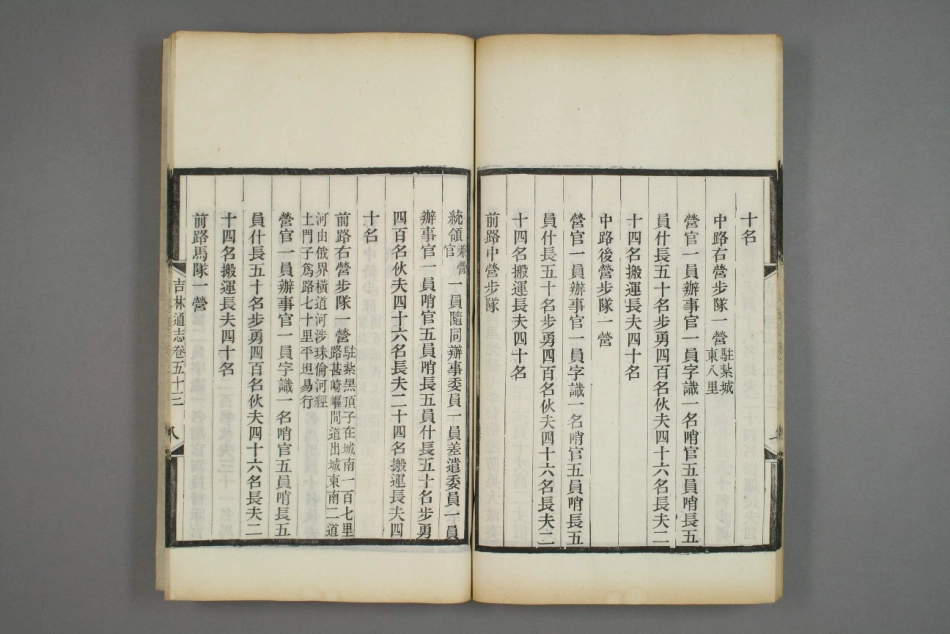 十名
中路右營步隊一營駐紮城
東八里
營官一員辦事官一員字識一名哨官五員哨長五
員什長五十名步勇四百名伙夫四十六名長夫二
十四名搬運長夫四十名
中路後營步隊一營
營官一員辦事官一員字識一名哨官五員哨長五
員什長五十名步勇四百名伙夫四十六名長夫二
十四名搬運長夫四十名
前路中營步隊
統領兼營
官一員隨同辦事委員一員差遣委員一員
辦事官一員哨官五員哨長五員什長五十名步勇
四百名伙夫四十六名長夫二十四名搬運長夫四
十名
前路右營步隊一營駐紮黑頂子在城南一百七里
路甚崎嶇間道出城東南二道
河由俄界橫道河涉珠倫河經
土門子爲路七十里平坦易行
營官一員辦事官一員字識一名哨官五員哨長五
員什長五十名步勇四百名伙夫四十六名長夫二
十四名搬運長夫四十名
前路馬隊一營
吉林通志卷五十三 八